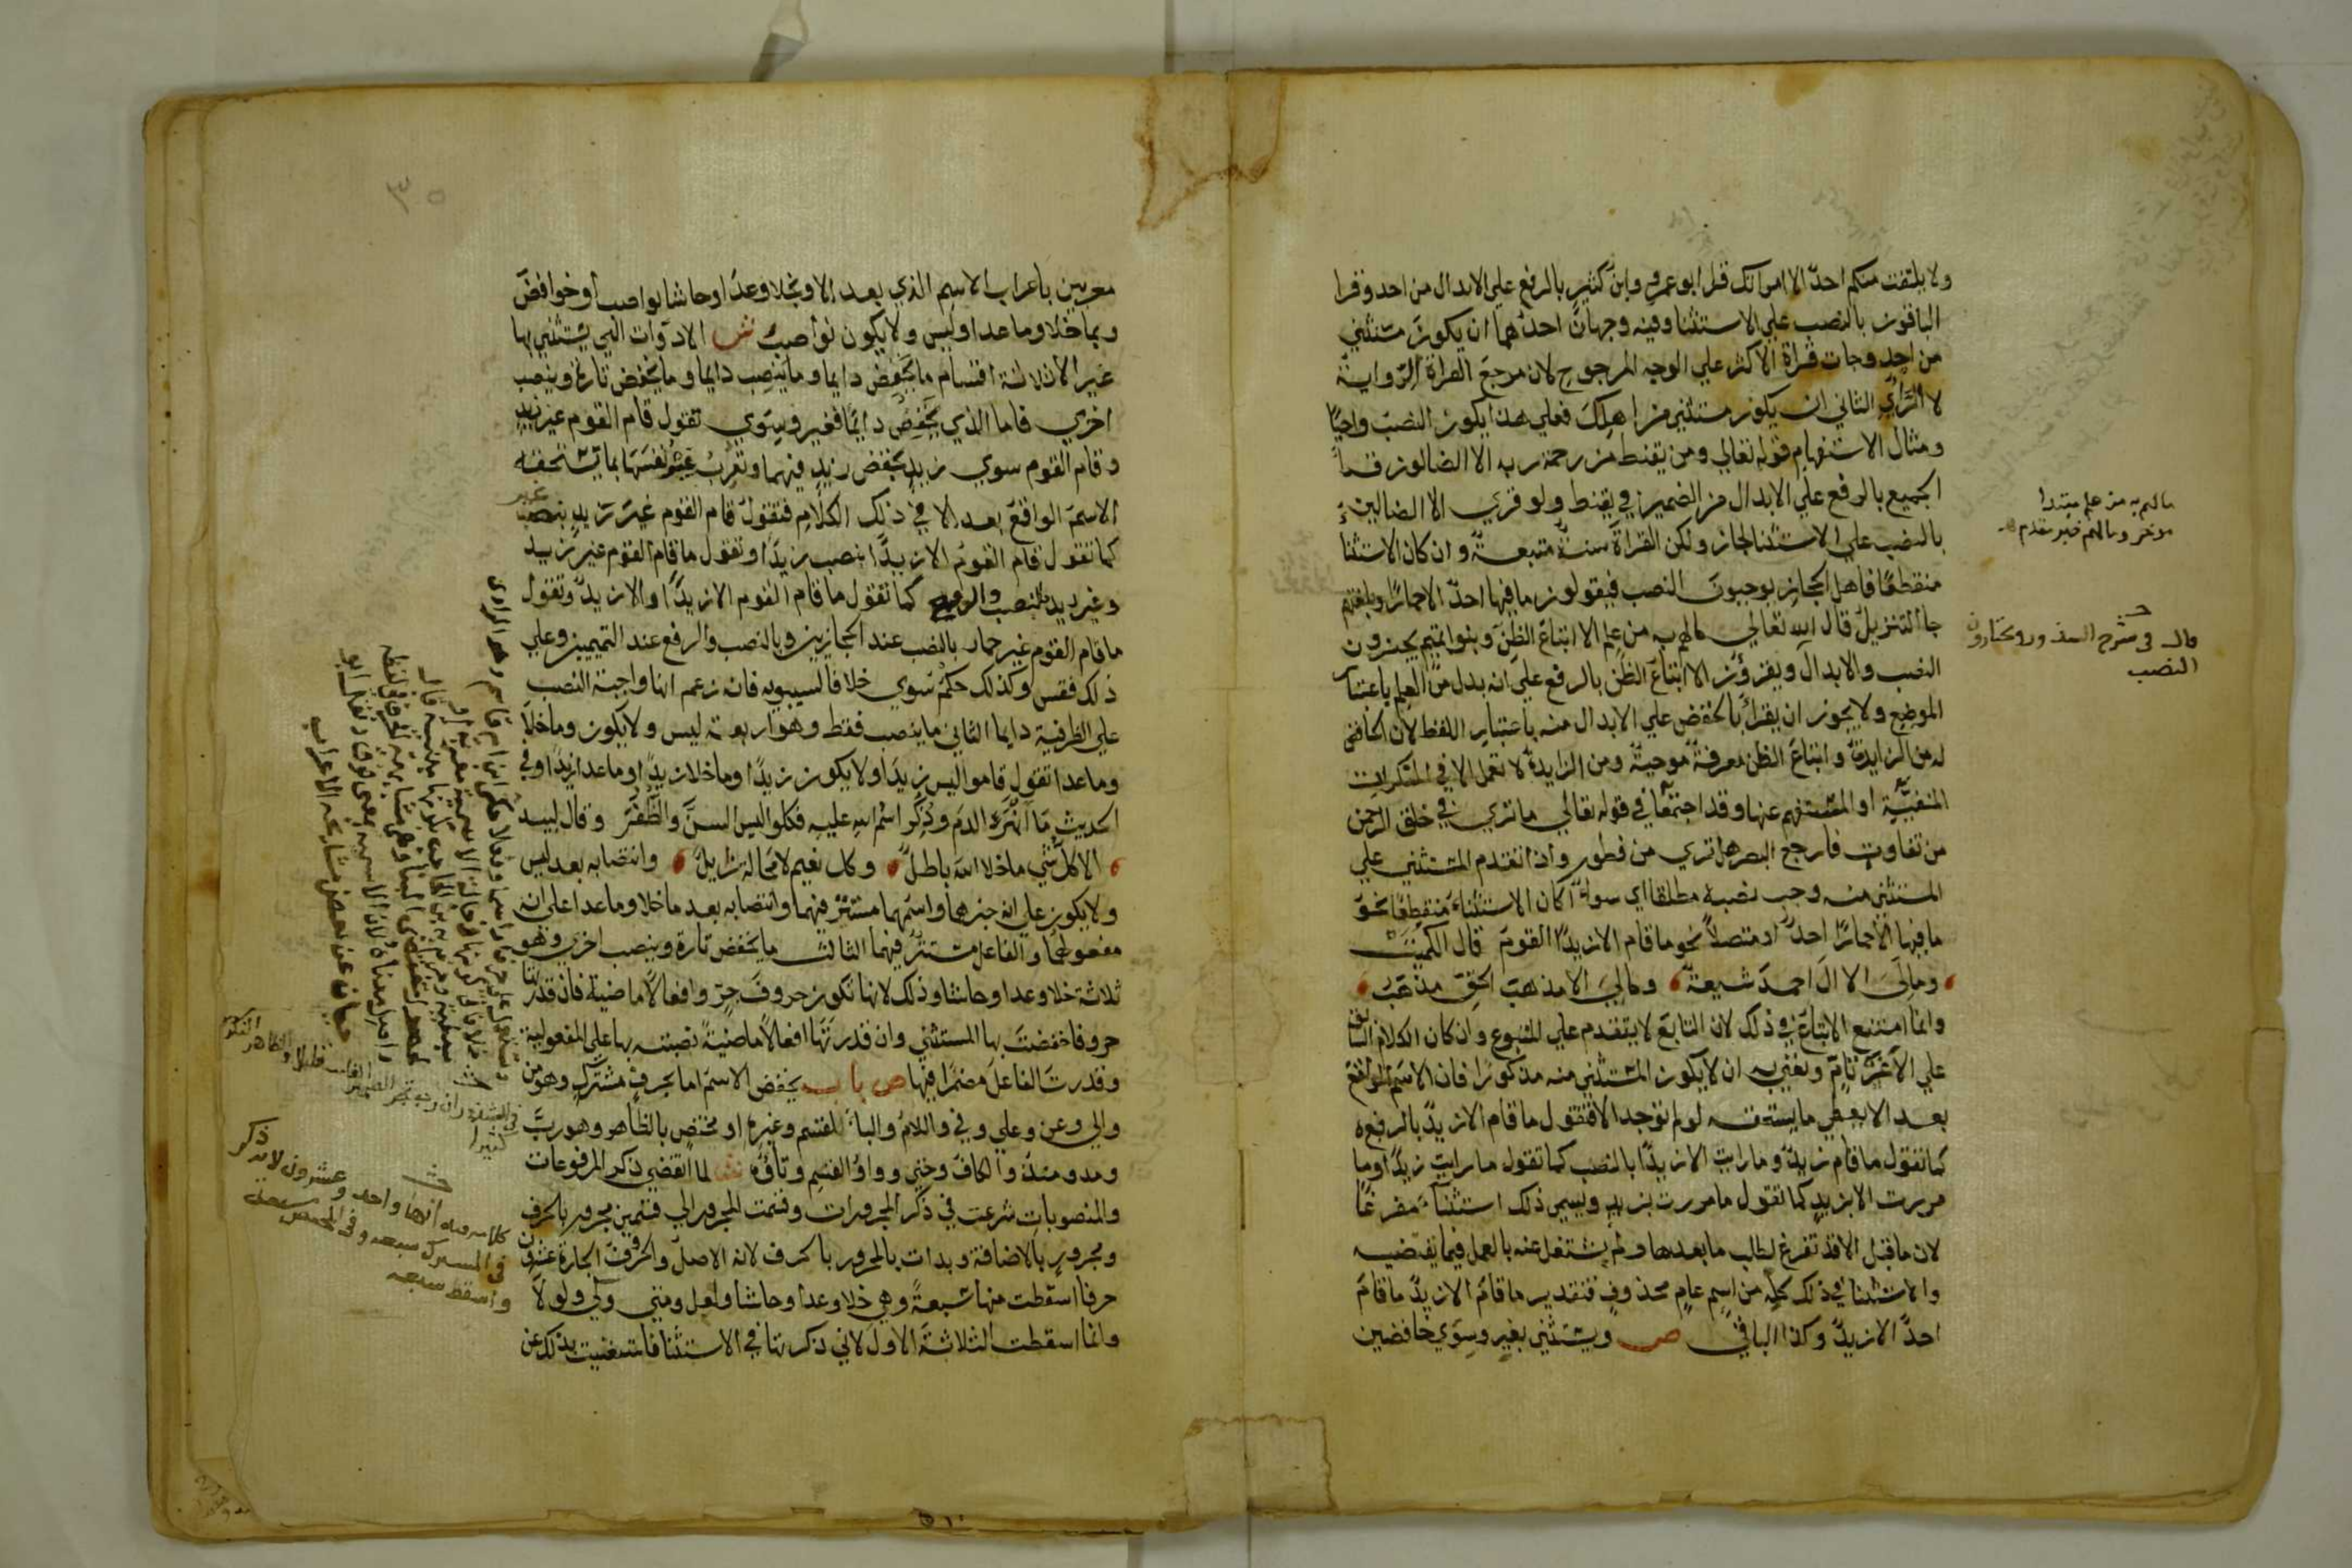 ولا يلتفت منكم احدٌ الا امراتك قرا ابو عمرو وابن كثير بالرفع علي الابدال من احد وقرا
الباقون بالنصب علي الاستثنا وفيه وجهان احدهما ان يكون مستثني
من احد وجات قراة الاكثر علي الوجه المرجوح لان مرجع القراة الرواية
لا الراي الثاني ان يكون مستثني من اهلك فعلي هذا يكون النصب واجبًا
ومثال الاستفهام قوله تعالي ومن يقنط من رحمة ربه الا الضالون قرا
الجميع بالرفع علي الابدال من الضمير في يقنط ولو قري الا الضالين
بالنصب علي الاستثنا لجاز ولكن القراة سنة متبعة وان كان الاستثنا
منقطعًا فاهل الحجاز يوجبون النصب فيقولون ما فيها احدٌ الا حمارًا وبلغتهم
جا التنزيل قال الله تعالي ما لهم به من علم الا اتباع الظن وبنوا تميم يجيزون
النصب والابدال ويقرؤن الا اتباع الظن بالرفع علي انه بدل من العلم باعتبار
الموضع ولا يجوز ان يقرأ بالخفض علي الابدال منه باعتبار اللفظ لان الخافض
له من الزايدة واتباع الظن معرفة موجبة ومن الزايدة لا تعمل الا في النكرات
المنفية او المستفهم عنها وقد اجتمعا في قوله تعالي ما تري في خلق الرحمن
من تفاوت فارجع البصر هل تري من فطور واذا تقدم المستثني علي
المستثني منه وجب نصبه مطلقا اي سواء اكان الاستثناء منقطعا نحو
ما فيها الا حمارًا احدٌ او متصلاً نحو ما قام الا زيدًا القوم قال الكميت
ومالي الا ال احمد شيعة ومالي الا مذهب الحق مذهب
وانما امتنع الاتباع في ذلك لان التابع لا يتقدم علي المتبوع وان كان الكلام السابق
علي الا غير تام ونعني به ان لا يكون المستثني منه مذكورًا فان الاسم الواقع
بعد الا يعطي ما يستحقه لو لم توجد الا فتقول ما قام الا زيدٌ بالرفع
كما تقول ما قام زيدٌ وما رايت الا زيدًا بالنصب كما تقول ما رايت زيدًا وما
مررت الا بزيد كما تقول ما مررت بزيد ويسمي ذلك استثناءً مفرغًا
لان ما قبل الا قد تفرغ لطلب ما بعدها ولم يشتغل عنه بالعمل فيما يقتضيه
والاستثنا في ذلك كله من اسم عام محذوف فتقدير ما قام الا زيدٌ ما قام
احدٌ الا زيدٌ وكذا الباقي ص ويستثني بغير وسوي خافضين
ما لهم به من علم مبتدا
موخر وما لهم خبر مقدم
قال في شرح الشذور ويختارون
النصب
معربين باعراب الاسم الذي بعد الا وبخلا وعدا وحاشا نواصب او خوافض
وبما خلا وما عدا وليس ولا يكون نواصب ش الادوات التي يستثني بها
غير الا ثلاثة اقسام ما يخفض دايما وما ينصب دايما وما يخفض تارة وينصب
اخري فاما الذي يخفض دايمًا فغير وسوي تقول قام القوم غير زيد
وقام القوم سوي زيد بخفض زيد فيهما وتعرب غير نفسها بما يستحقه
الاسم الواقع بعد الا في ذلك الكلام فتقول قام القوم غير زيد بنصب غير
كما تقول قام القوم الا زيدًا بنصب زيدًا وتقول ما قام القوم غير زيد
وغير زيد بالنصب والرفع كما تقول ما قام القوم الا زيدًا والا زيدٌ وتقول
ما قام القوم غير حمار بالنصب عند الحجازيين وبالنصب والرفع عند التميميين وعلي
ذلك فقس وكذلك حكم سوي خلافا لسيبويه فانه زعم انها واجبة النصب
علي الظرفية دايما الثاني ما ينصب فقط وهو اربعة ليس ولا يكون وما خلا
وما عدا تقول قاموا ليس زيدًا ولا يكون زيدًا وما خلا زيدًا وما عدا زيدًا وفي
الحديث ما انهر الدم وذكر اسم الله عليه فكلوا ليس السن والظفر وقال لبيد
الا كل شي ما خلا الله باطل وكل نعيم لا محالة زايل وانتصابه بعد ليس
ولا يكون علي انه خبرهما واسمهما مستتر فيهما وانتصابه بعد ما خلا وما عدا علي انه
مفعولهما والفاعل مستتر فيهما الثالث ما يخفض تارة وينصب اخري وهو
ثلاثة خلا وعدا وحاشا وذلك لانها تكون حروف جر وافعالاً ماضية فان قدرتها
حروفا خفضت بها المستثني وان قدرتها افعالاً ماضية نصبته بها علي المفعولية
وقدرت الفاعل مضمرًا فيها ص باب يخفض الاسم اما بحرف مشترك وهو من
والي وعن وعلي وفي واللام والباء للقسم وغيره او مختص بالظاهر وهو رب
ومذ ومنذ والكاف وحتي وواو القسم وتاؤه ش لما انقضي ذكر المرفوعات
والمنصوبات شرعت في ذكر المجرورات وقسمت المجرور الي قسمين مجرور بالحرف
ومجرور بالاضافة وبدات بالمجرور بالحرف لانه الاصل والحروف الجارة عشرون
حرفا اسقطت منها سبعة وهي خلا وعدا وحاشا ولعل ومتي وكي ولولا
وانما اسقطت الثلاثة الاول لاني ذكرتها في الاستثنا فاستغنيت بذلك عن
انها واحد وعشرون لانه ذكر
في المشترك سبعه وفي المختص سبعة
واسقط سبعه